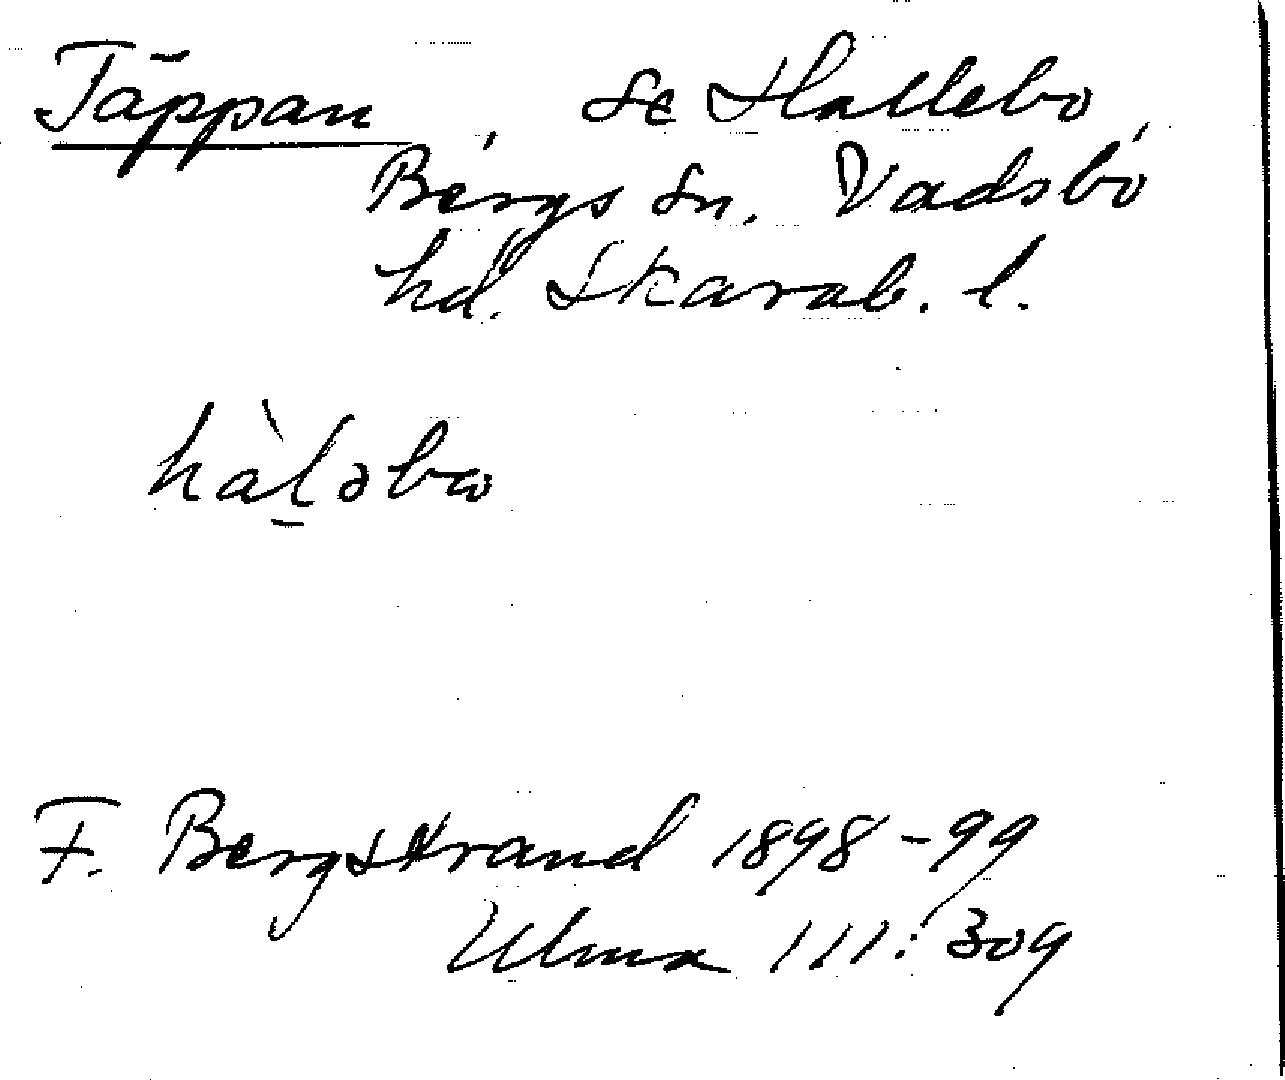 Täppan, se Hallebo,
Bergs sn. Vadsbo
hd. Skarab. l.
hàl̠əbω
F. Bergstrand 1898-99
Ulma 111:309